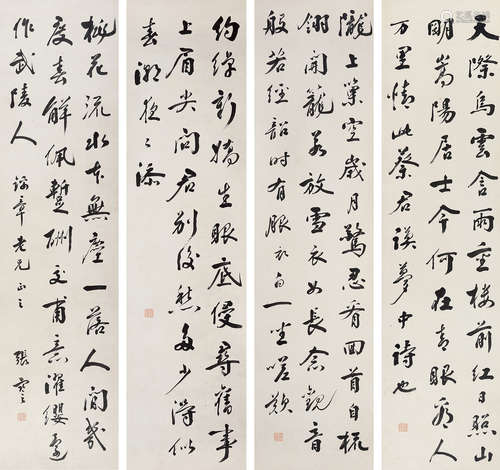 天際烏雲含雨重樓前紅日照山
明嵩陽居士今何在青眼看人
万里情此蔡君謨夢中詩也
隴上巢空歲月驚忍看回首自梳
翎開籠若放雪衣女長念觀音
般若經韶時有服衣白一坐嗟歎
約綽新嬌生眼底侵尋舊事
上眉尖問君別後愁多少得似
春潮夜〻添
桃花流水本無塵一落人間幾
度春解佩暫酬交甫意濯纓還
作武陵人 章老兄正之 張